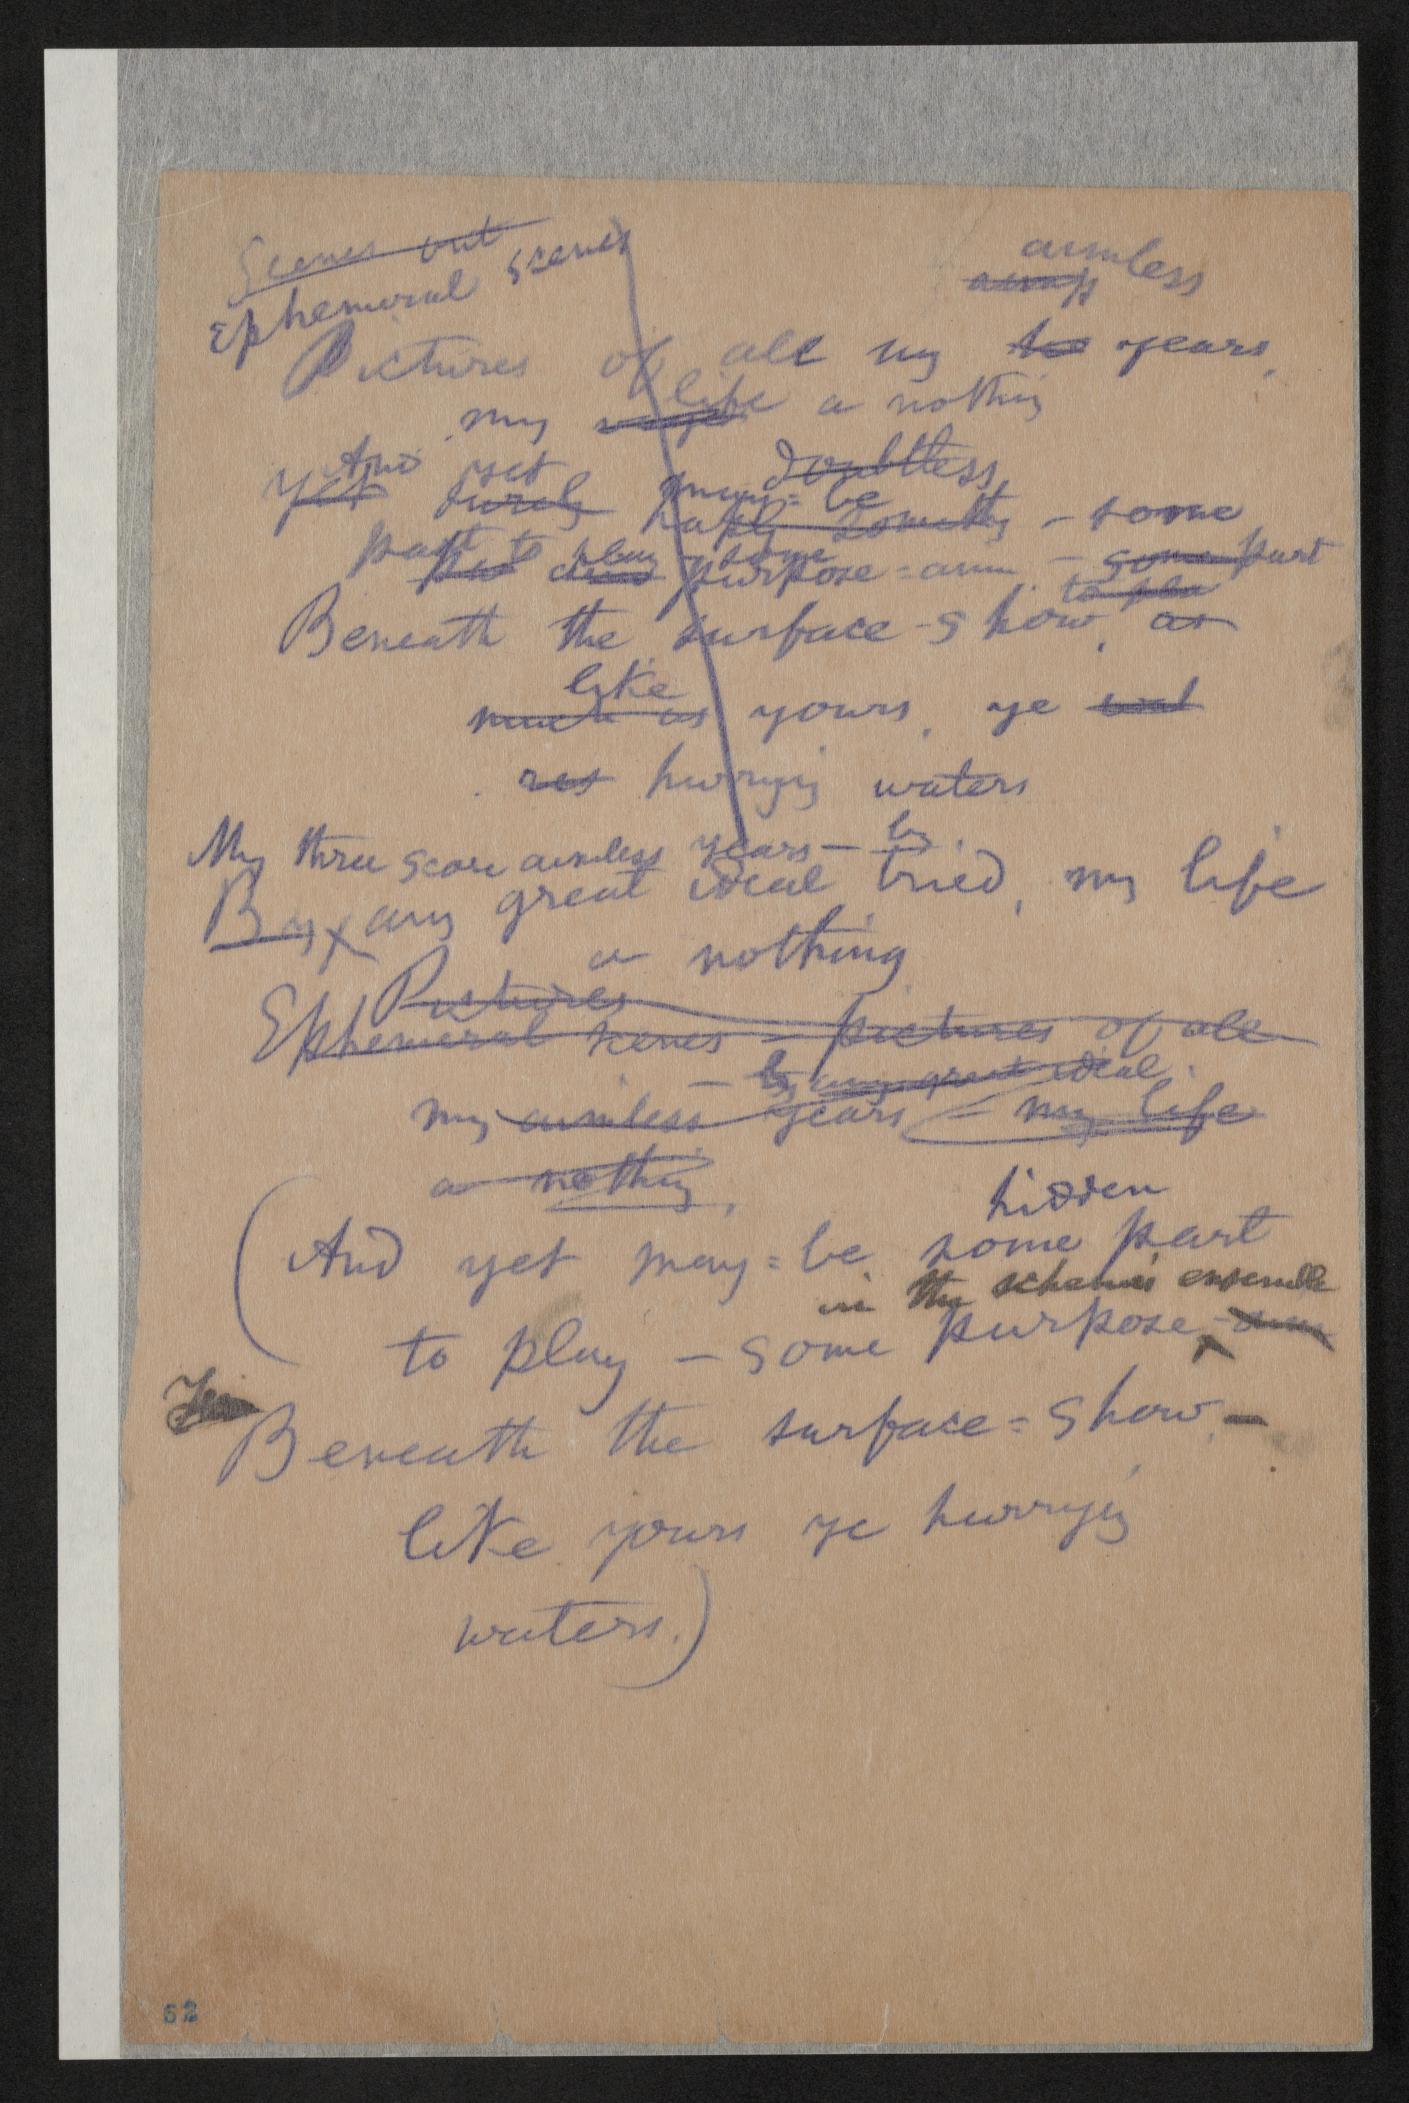 Scenes out
Ephemeral scenes
aimless
Pictures of all my years,
life
my a nothing
And yet doubtless
Yet surely may=be
haply something - some
part to play some
purpose=aim - some part
to pla
Beneath the surface-show, as
like
much as yours, ye
res hurrying waters
My three score aimless years - by
By any great ideal tried, my life
a nothing
Pictures
Ephemeral scenes = pictures of all
- by any great ideal
my aimless years = my life
a nothing,
hidden
(And yet may=be some part
in the scheme's ensemble
to play - some purpose - aim
Beneath the surface=show, -
like yours ye hurrying
waters.)
52